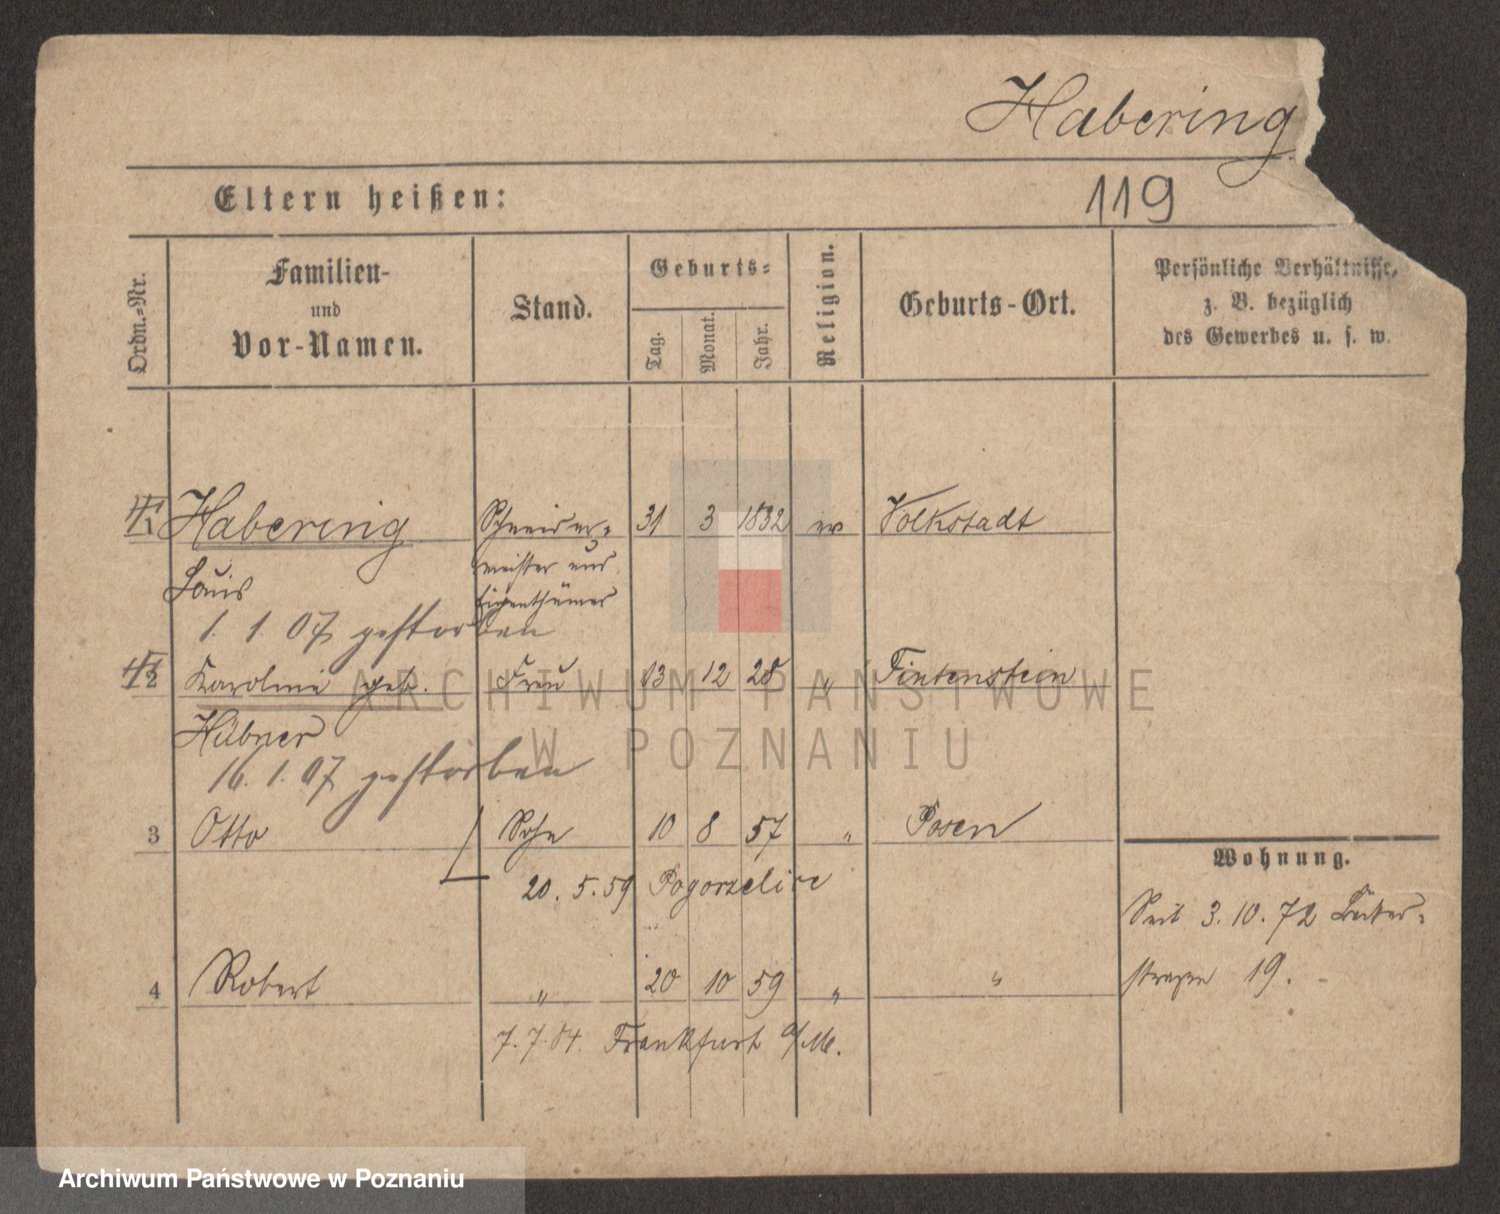 Habering
Eltern heißen:
119
Ordn.-Nr.
Familien-
und
Vor-Namen.
Stand.
Geburts-
Tag.
Monat.
Jahr.
Religion.
Geburts-Ort.
Persönliche Verhältnisse,
z. B. bezüglich
des Gewerbes u. s. w.
1 Habering Schneider- 31 3 1832 ev Volkstadt
meister und
Louis Eigenthümer
1. 1. 07 gestorben
2 Karoline geb. Frau 13 12 28 " Tintenstein
Hübner
16. 1. 07 gestorben
3 Otto Sohn 10 8 57 " Posen
20. 5. 59 Pogorzelice
4 Robert " 20 10 59 " "
7. 7. 84. Frankfurt a/M.
Wohnung.
Seit 3. 10. 72
straße 19.
ARCHIWUM PAŃSTWOWE
W POZNANIU
Archiwum Państwowe w Poznaniu